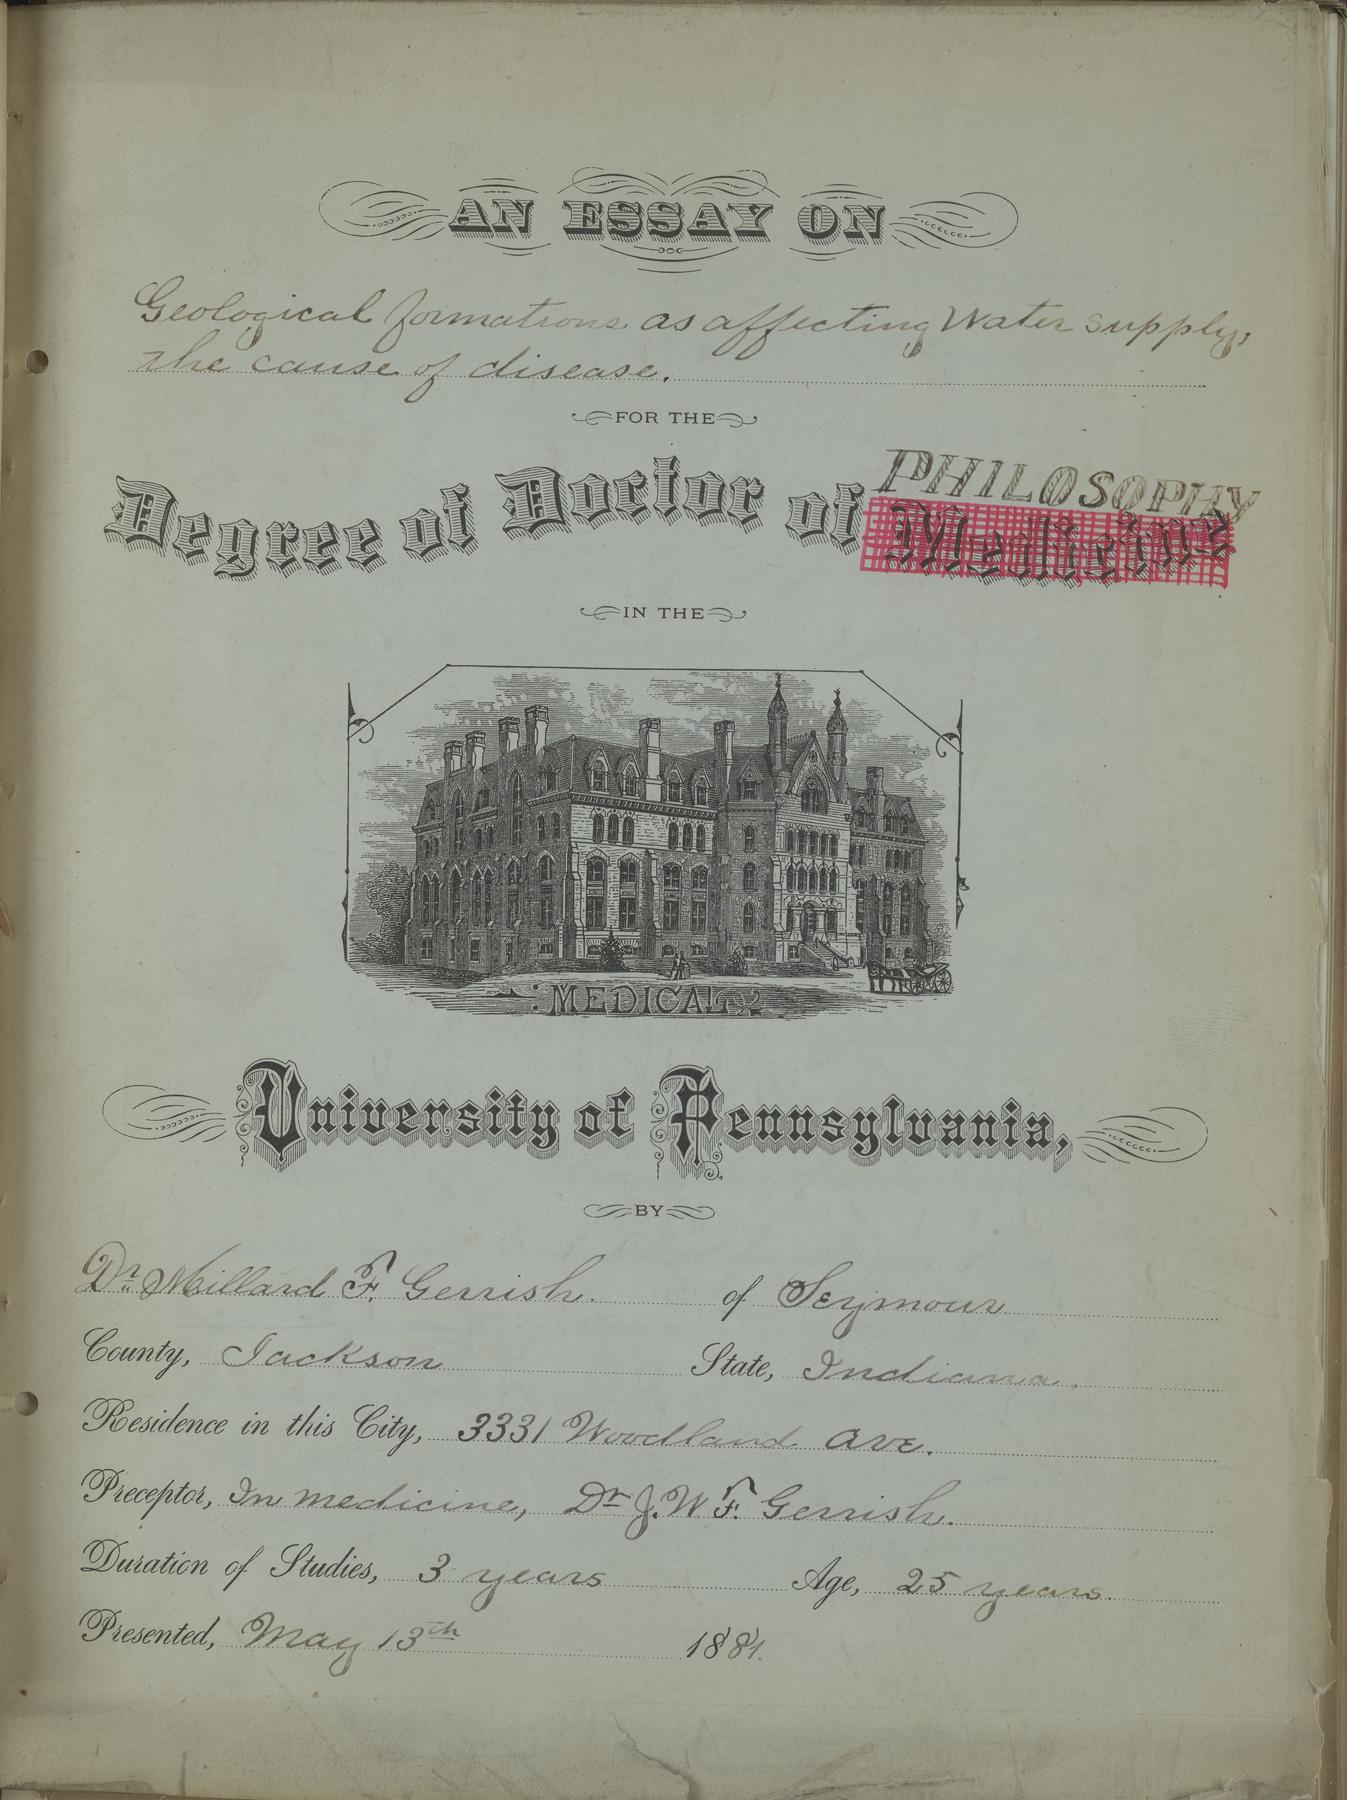 AN ESSAY ON
Geological formations as affecting Water supply,
the cause of disease.
FOR THE
PHILOSOPHY
Degree of Doctor of Medicine
IN THE
MEDICAL
University of Pennsylvania,
BY
Dr. Millard F. Gerrish. of Seymour
County, Jackson State, Indiana.
Residence in this City, 3331 Woodland ave.
Preceptor, In medicine, Dr J. W F. Gerrish.
Duration of Studies, 3 years Age, 25 years.
Presented, May 13th 1881.